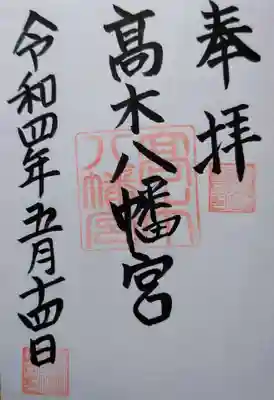 奉拝
髙木八幡宮
令和四年五月十四日